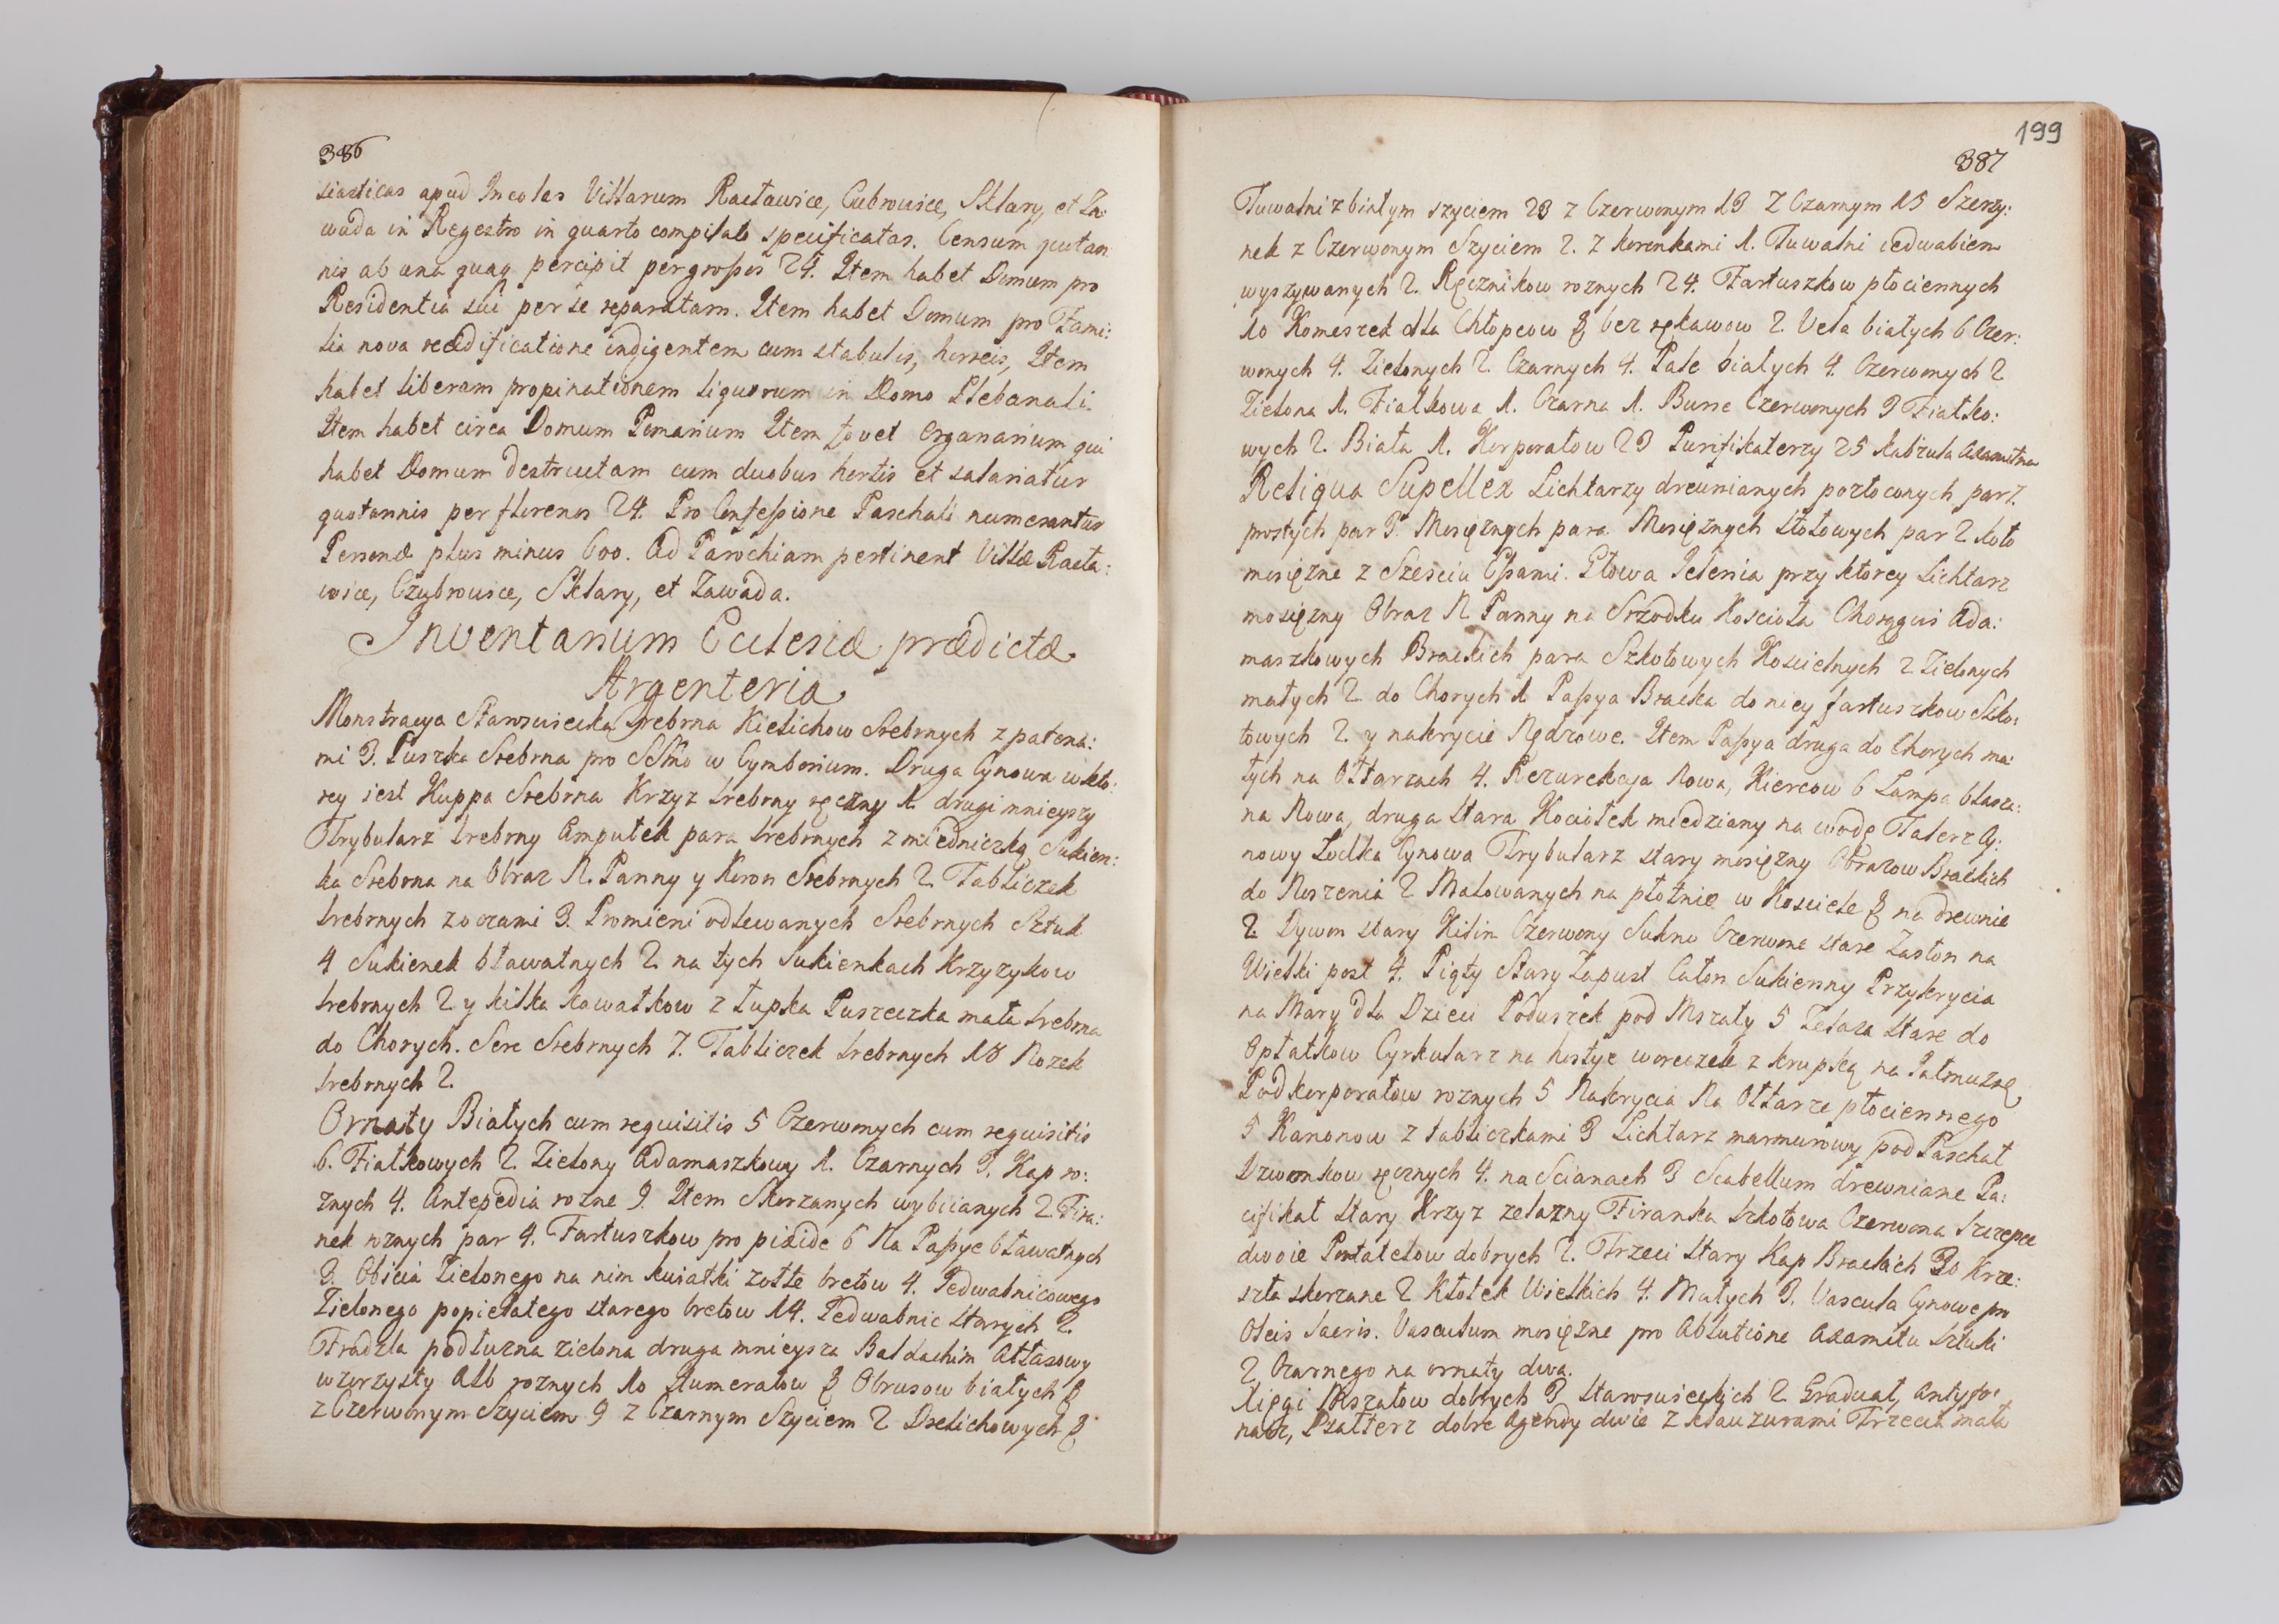 386
siasticas apud Incolas Villarum Racławice, Cubrowice, Sklary, et Za:
wada in Regestro in quarto compilato specificatas. Censum quotan
nis ab una quaq percipit per grossos 24. Item habet Domum pro
Residentia sui per se reparatam. Item habet Domum pro Fami:
lia nova reædificatione indigentem cum stabulis, horreis, Item
habet liberam propinationem liquorum in Domo Plebanali.
Item habet circa Domum Pomarium Item fovet Organarium qui
habet Domum destructam cum duobus hortis et salariatur
quotannis per florenos 24. Pro Confessione Paschali numerantur
Personæ plus minus 600. Ad Parochiam pertinent Villæ Racła:
wice, Czubrowice, Sklary, et Zawada.
Inventarium Ecclesiæ prædictæ
Argenteria
Monstracya Staroswiecka srebrna Kielichow Srebrnych z patena:
mi 3. Puszka Srebrna pro SSmo w Cymborium. Druga Cynowa w kto:
rey iest Kuppa Srebrna Krzyz srebrny ręczny 1. drugi mnieyszy
Trybularz srebrny Ampułek para srebrnych z miedniczką Sukien:
ka Srebrna na Obraz N. Panny y Koron Srebrnych 2. Tabliczek
srebrnych z oczami 3. Promieni odlewanych Srebrnych Sztuk
4 Sukienek bławatnych 2 na tych Sukienkach Krzyzykow
srebrnych 2 y kilka kawałkow z łupka Puszeczka mała srebrna
do Chorych. Serc Srebrnych 7. Tabliczek srebrnych 18 Nozek
srebrnych 2.
Ornaty Białych cum requisitis 5 Czerwonych cum requisitis
6. Fiałkowych 2. Zielony Adamaszkowy 1. Czarnych 3. Kap ro:
znych 4. Antepedia rozne 9. Item Skorzanych wybiianych 2. Fira:
nek roznych par 4. Fartuszkow pro pixide 6 Na Passye bławatnych
3. Obicia Zielonego na nim kwiatki zołte bretow 4. Jedwabnicowego
Zielonego popielatego starego bretow 14. Jedwabnic Starych 2.
Fradzla podłuzna zielona druga mnieysza Baldachim Atłasowy
wzorzysty Alb roznych 10 Humerałow 8 Obrusow białych 8
z Czerwonym Szyciem 9 z Czarnym Szyciem 2 Drelichowych 8
199
387
Tuwalni z białym szyciem 23 z Czerwonym 13 Z Czarnym 15 Szerzy:
nek z Czerwonym Szyciem 2. z koronkami 1. Tuwalni iedwabiem
wyszywanych 2. Ręcznikow roznych 24. Fartuszkow płociennych
10 Komeszek dla Chłopcow 8 bez rękawow 2. Vela białych 6 Czer:
wonych 4. Zielonych 2. Czarnych 4. Pale białych 4. Czerwonych 2
Zielona 1. Fiałkowa 1. Czarna 1. Burse Czerwonych 3 Fiałko:
wych 2. Biała 1. Korporałow 23 Purifikaterzy 25 kabzula Axamitna
Reliqua Supellex Lichtarzy drewnianych pozłoconych par 7.
prostych par 3. Mosięznych para Mosięznych stołowych par 2 koło
mosięzne z Szescia Essami. Głowa Jelenia przy ktorey Lichtarz
mosięzny Obraz N Panny na Srzodku Koscioła Chorągwi Ada:
maszkowych Brackich para Szkotowych Koscielnych 2 Zielonych
małych 2. do Chorych 1 Passya Bracka do niey fartuszkow Szko:
towych 2. y nakrycie Rądzowe. Item Passya druga do Chorych ma
łych na Ołtarzach 4. Rezurekcya Nowa, Kiercow 6 Lampa blasza:
na Nowa, druga stara Kociołek miedziany na wodę Talerz Cy:
nowy Łodka Cynowa Trybularz stary mosięzny Obrazow Brackich
do Noszenia 2 Malowanych na płotnie w Kosciele 8 na drewnie
2. Dywon stary Kilim Czerwony Sukno Czerwone stare Zasłon na
Wielki post 4. Piąty Stary Zapust Całon Sukienny Przykrycia
na Mary dla Dzieci Poduszek pod Mszały 5 Zelaza Stare do
Opłatkow Cyrkularz na hostye woreczek z krupką na Jałmuznę
Podkorporałow roznych 5 Nakrycia Na Ołtarze płociennego
5 Kanonow z tabliczkami 3 Lichtarz marmurowy pod Paschał
Dzwonkow ręcznych 4. na Scianach 3 Scabellum drewniane Pa:
cifikał Stary Krzyz zelazny Firanka Szkotowa Czerwona Szczepce
dwoie Portatelow dobrych 2. Trzeci stary Kap Brackich 30 Krze:
sła skorzane 2 Kłotek Wielkich 4. Małych 3. Vascula Cynowe pro
Oleis Sacris. Vasculum mosięzne pro Ablutione Axamitu Sztuki
2 Czarnego na ornaty dwa.
Xięgi Mszałow dobrych 3 staroswieckich 2 Graduał, Antyfo:
narz, Psałterz dobre Agendy dwie z klauzurami Trzecia mała